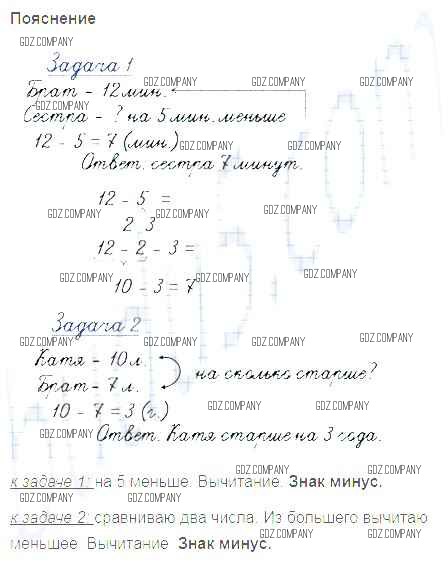 Пояснение
GDZ.COMPANY
Задача 1
GDZ.COMPANY GDZ.COMPANY GDZ.COMPANY
Брат - 12 мин.
GDZ.COMPANY
Сестра - ? на 5 мин. меньше
12 - 5 = 7 (мин.)
GDZ.COMPANY GDZ.COMPANY
Ответ. сестра 7 минут.
12 - 5 =
GDZ.COMPANY GDZ.COMPANY GDZ.COMPANY
2 3
12 - 2 - 3 =
GDZ.COMPANY GDZ.COMPANY GDZ.COMPANY
10 - 3 = 7
Задача 2
GDZ.COMPANY GDZ.COMPANY GDZ.COMPANY GDZ.COMPANY
Катя - 10 л.
на сколько старше?
Брат - 7 л.
10 - 7 = 3 (г.)
GDZ.COMPANY GDZ.COMPANY
GDZ.COMPANY
Ответ. Катя старше на 3 года.
GDZ.COMPANY GDZ.COMPANY
к задаче 1: на 5 меньше. Вычитание. Знак минус.
GDZ.COMPANY GDZ.COMPANY GDZ.COMPANY
к задаче 2: сравниваю два числа. Из большего вычитаю
GDZ.COMPANY GDZ.COMPANY GDZ.COMPANY
меньшее. Вычитание. Знак минус.